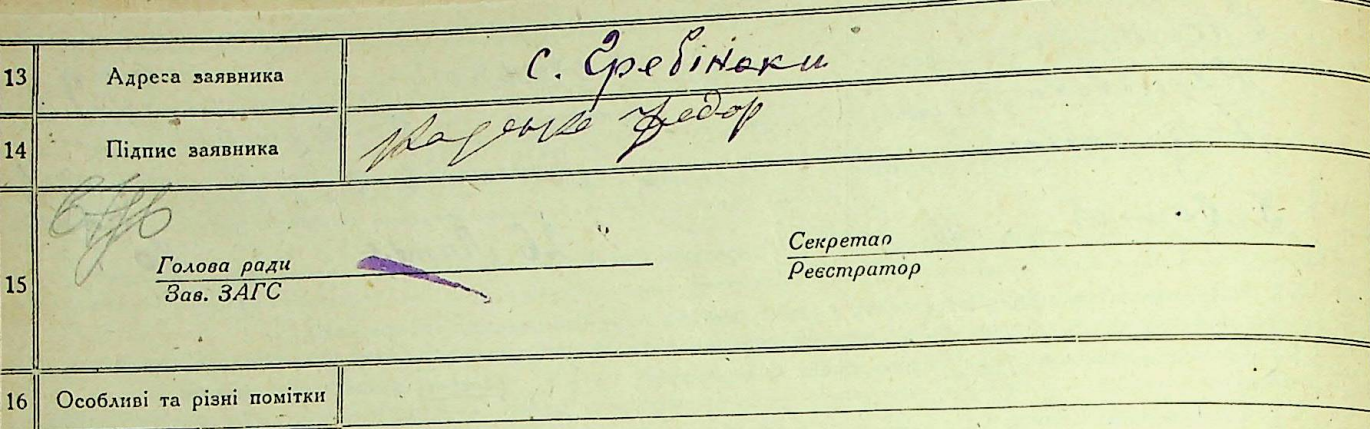 13 Адреса заявника с. Гребінки
14 Підпис заявника Федор
15
Голова ради
Зав. ЗАГС
Секретар
Реєстратор
16 Особливі та різні помітки